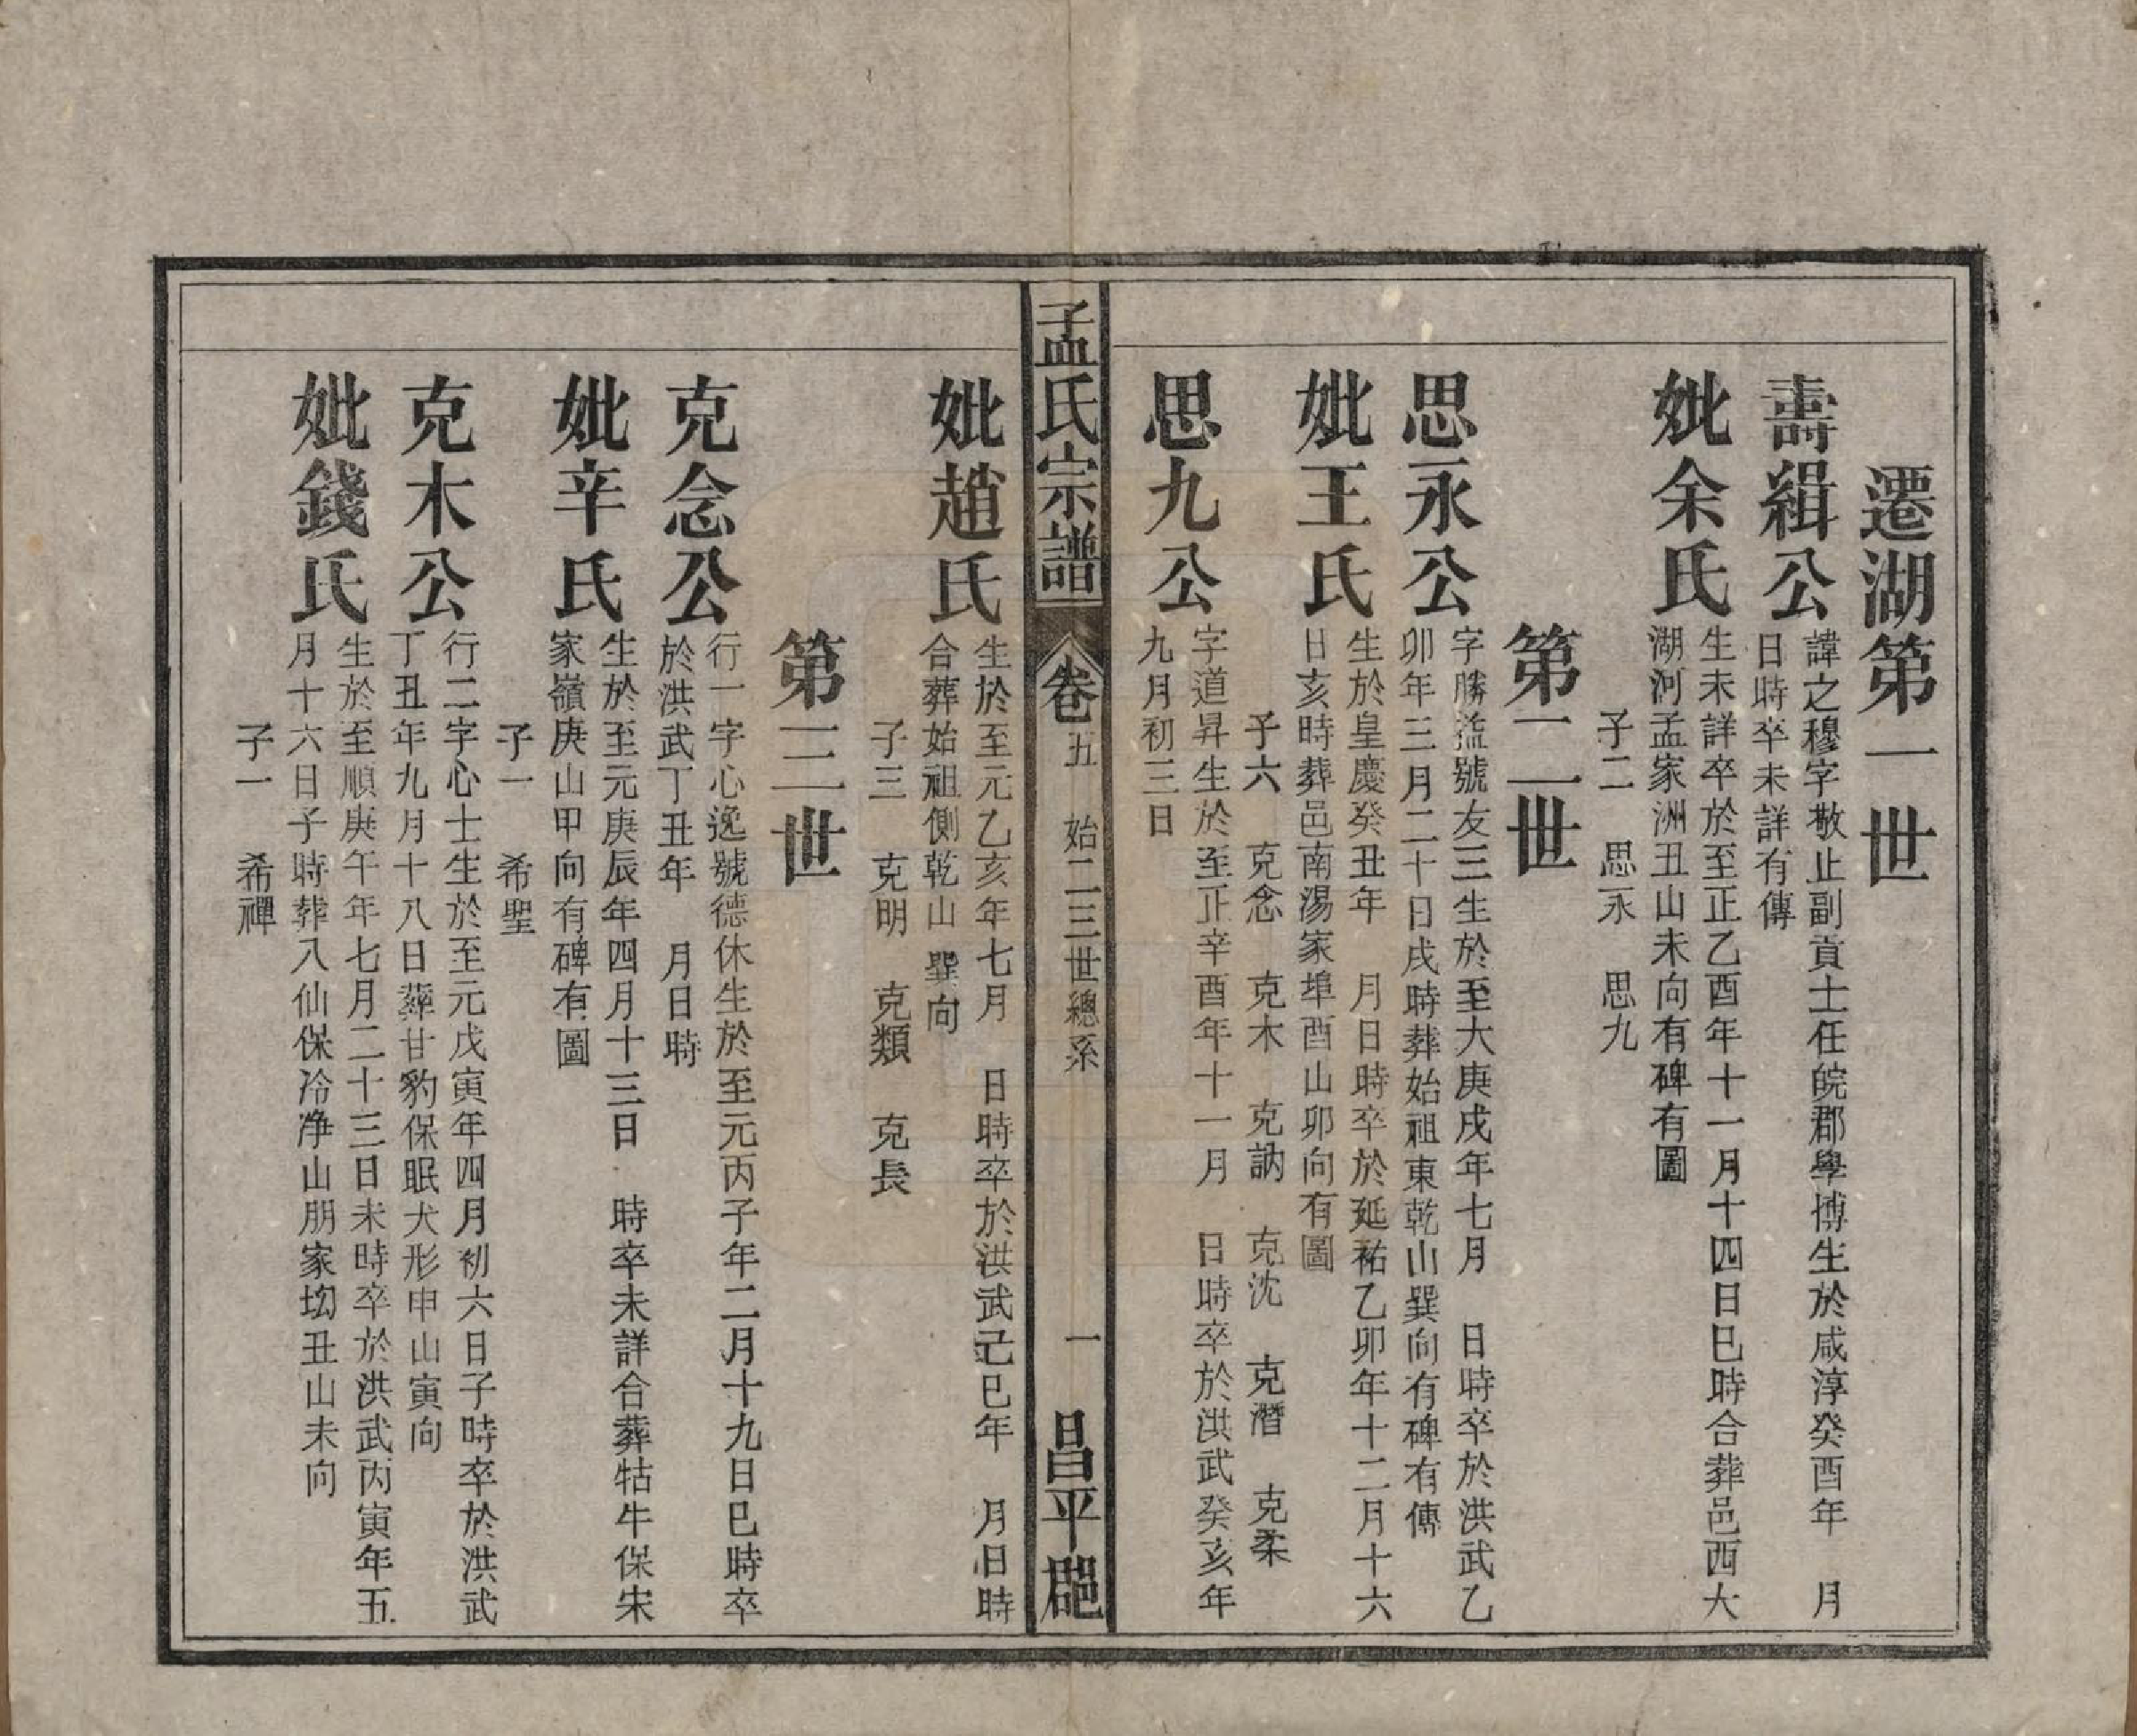 遷湖第一世
壽緝公
諱之穆字敬止副貢士任皖郡學博生於咸淳癸酉年　月
日時卒未詳有傳
妣余氏
生未詳卒於至正乙酉年十一月十四日巳時合葬邑西大
湖河孟家洲丑山未向有碑有圖
子二　思永　思九
第二世
思永公
字勝益號友三生於至大庚戌年七月　日時卒於洪武乙
卯年三月二十日戌時葬始祖東乾山巽向有碑有傳
妣王氏
生於皇慶癸丑年　月日時卒於延祐乙卯年十二月十六
日亥時葬邑南湯家埠酉山卯向有圖
子六　克念　克木　克訥　克沈　克潛　克柔
思九公
字道昇生於至正辛酉年十一月　日時卒於洪武癸亥年
九月初三日
孟氏宗譜
卷五　始二三世總系　一
昌平郡
妣趙氏
生於至元乙亥年七月　日時卒於洪武己巳年　月日時
合葬始祖側乾山巽向
子三　克明　克類　克長
第三世
克念公
行一字心逸號德休生於至元丙子年二月十九日巳時卒
於洪武丁丑年　月日時
妣辛氏
生於至元庚辰年四月十三日　時卒未詳合葬牯牛保宋
家嶺庚山甲向有碑有圖
子一　希聖
克木公
行二字心士生於至元戊寅年四月初六日子時卒於洪武
丁丑年九月十八日葬甘豹保眠犬形申山寅向
妣錢氏
生於至順庚午年七月二十三日未時卒於洪武丙寅年五
月十六日子時葬入仙保冷净山朋家坳丑山未向
子一　希禪